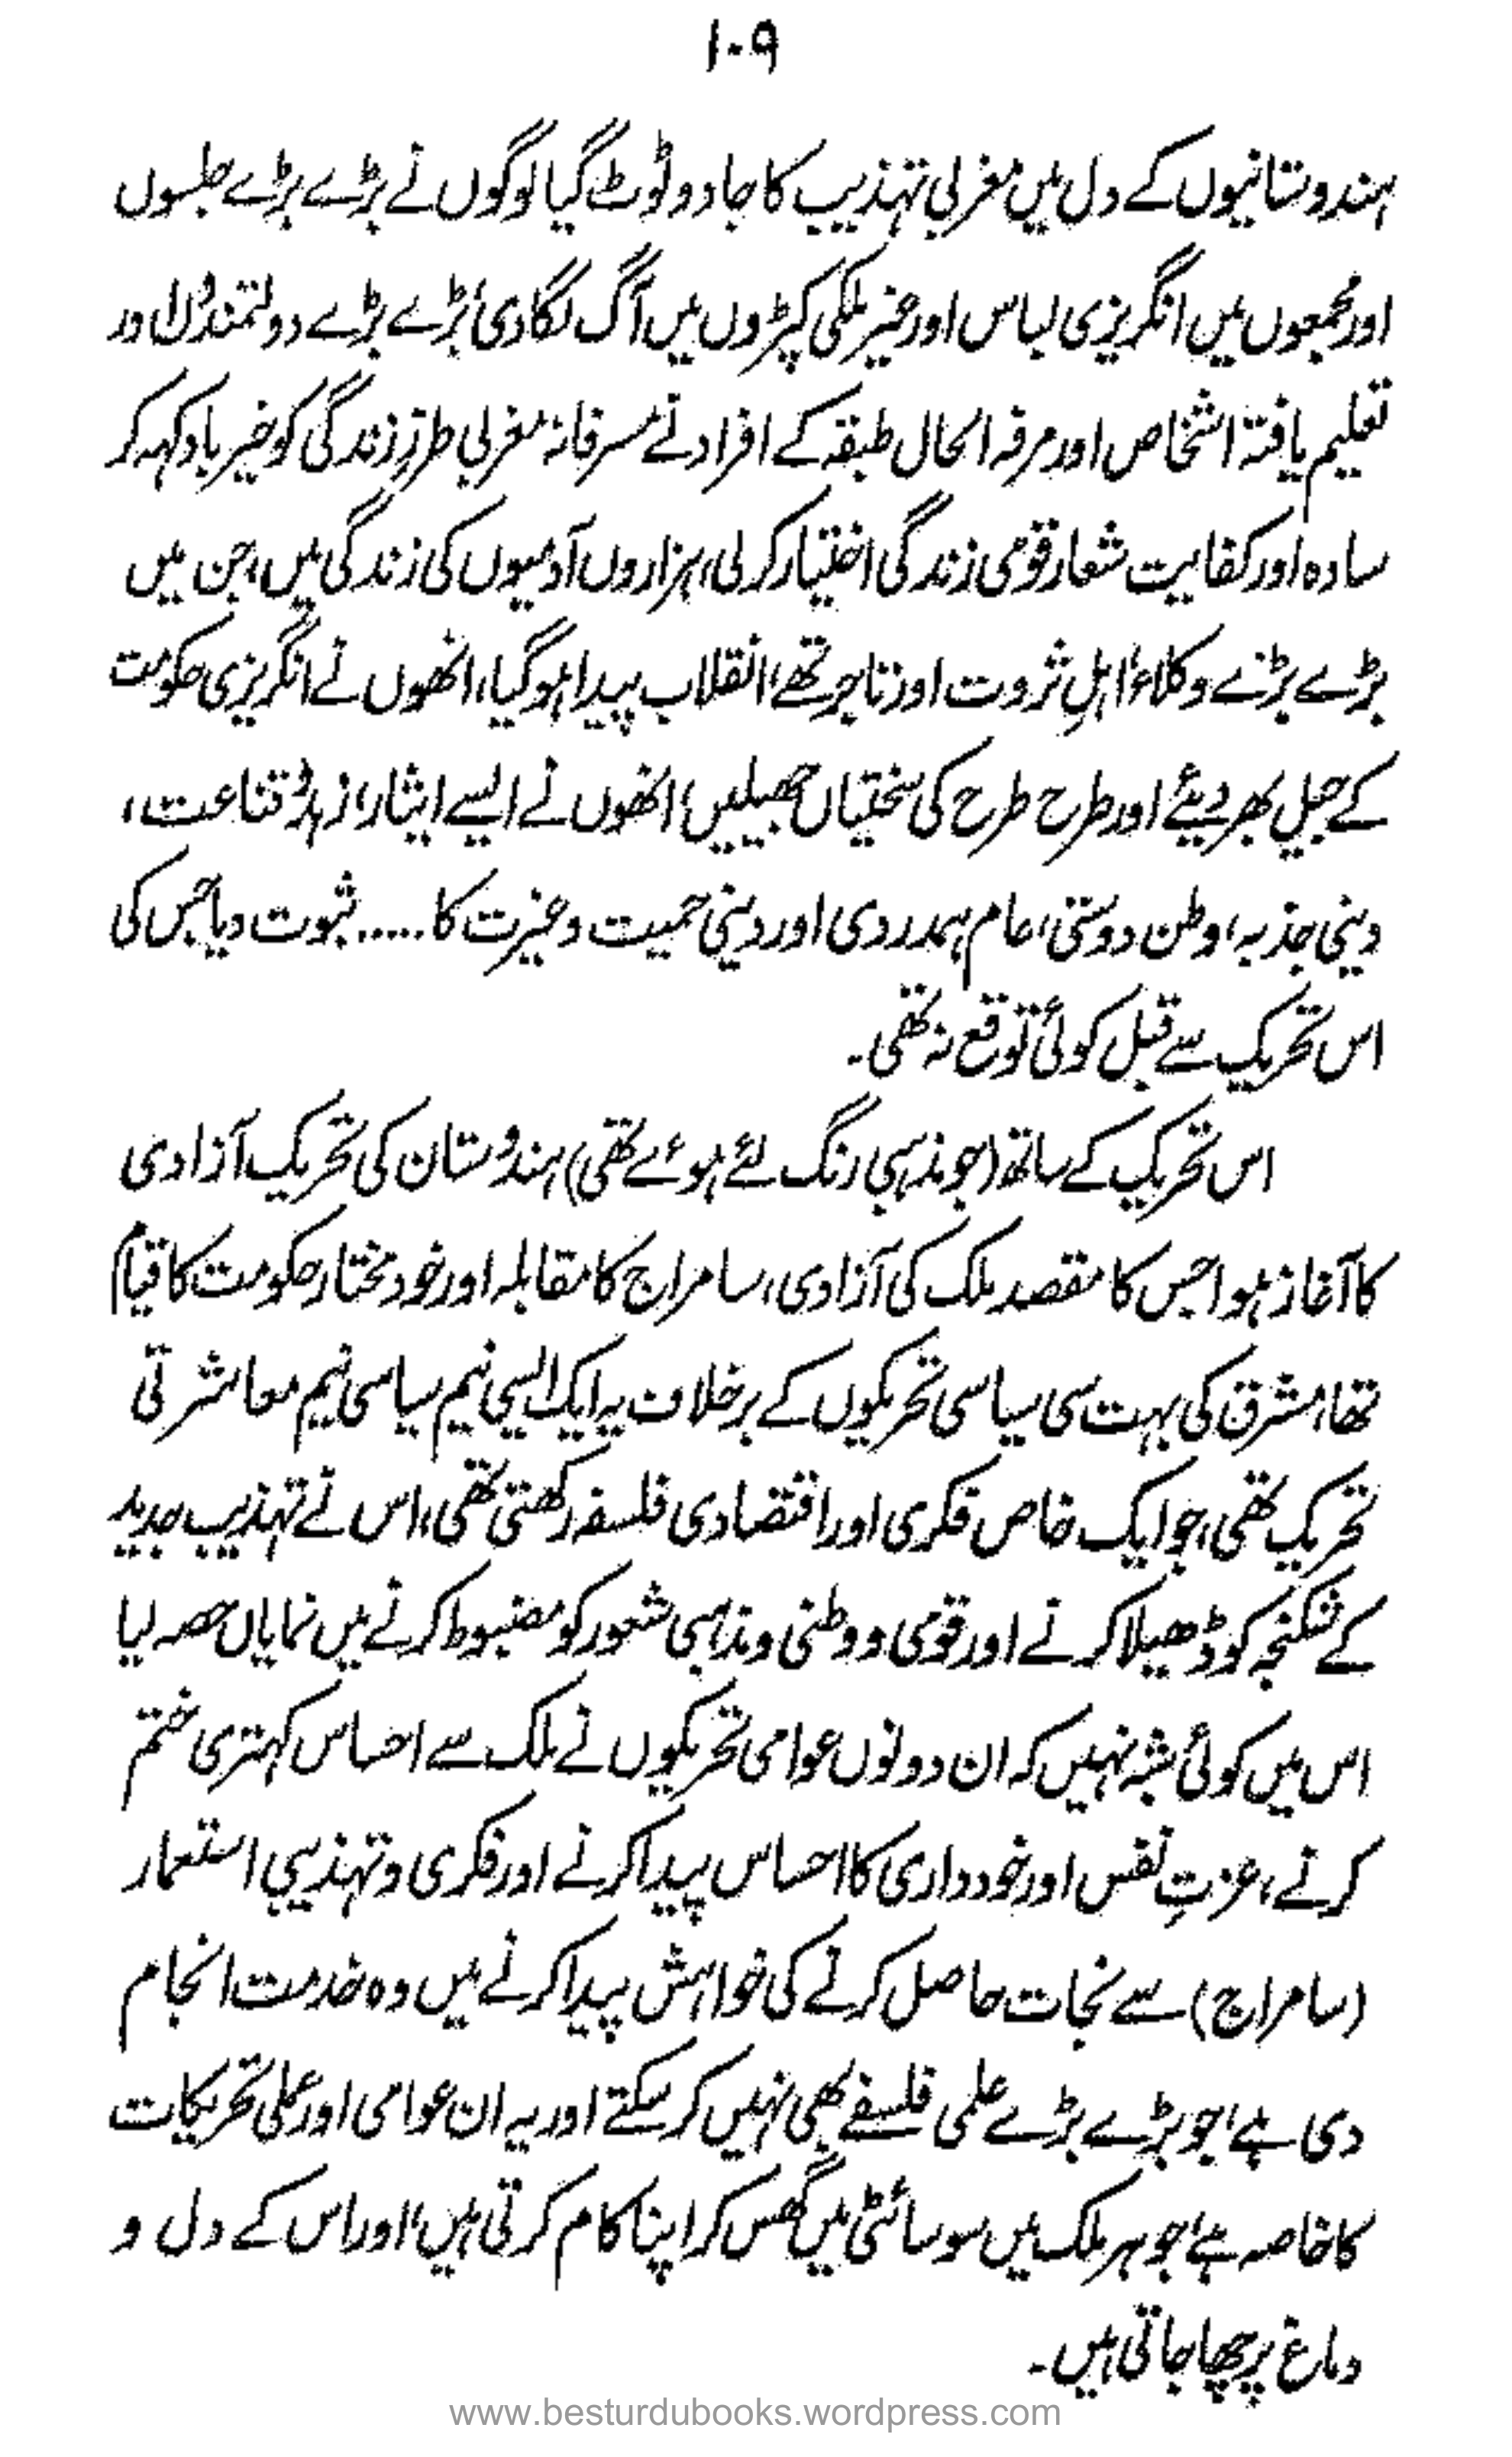 ۱۰۹
ہندوستانیوں کے دل میں مغربی تہذیب کا جادو ٹوٹ گیا لوگوں نے بڑے بڑے جلسوں
اور مجمعوں میں انگریزی لباس اور غیر ملکی کپڑوں میں آگ لگا دی، بڑے بڑے دولتمندوں اور
تعلیم یافتہ اشخاص اور مرفہ الحال طبقہ کے افراد نے مسرفانہ مغربی طرزِ زندگی کو خیر باد کہہ کر
سادہ اور کفایت شعار قومی زندگی اختیار کر لی، ہزاروں آدمیوں کی زندگی میں، جن میں
بڑے بڑے وکلاء، اہلِ ثروت اور تاجر تھے، انقلاب پیدا ہو گیا، انھوں نے انگریزی حکومت
کے جیل بھر دیئے اور طرح طرح کی سختیاں جھیلیں، انھوں نے ایسے ایثار، زہد و قناعت،
دینی جذبہ، وطن دوستی، عام ہمدردی اور دینی حمیت و غیرت کا ..... ثبوت دیا جس کی
اس تحریک سے قبل کوئی توقع نہ تھی۔
اس تحریک کے ساتھ (جو مذہبی رنگ لئے ہوئے تھی) ہندوستان کی تحریک آزادی
کا آغاز ہوا جس کا مقصد ملک کی آزادی، سامراج کا مقابلہ اور خود مختار حکومت کا قیام
تھا، مشرق کی بہت سی سیاسی تحریکوں کے برخلاف یہ ایک ایسی نیم سیاسی نیم معاشرتی
تحریک تھی، جو ایک خاص فکری اور اقتصادی فلسفہ رکھتی تھی، اس نے تہذیب جدید
کے شکنجہ کو ڈھیلا کرنے اور قومی و وطنی و مذہبی شعور کو مضبوط کرنے میں نمایاں حصہ لیا
اس میں کوئی شبہ نہیں کہ ان دونوں عوامی تحریکوں نے ملک سے احساس کہتری ختم
کرنے، عزتِ نفس اور خودداری کا احساس پیدا کرنے اور فکری و تہذیبی استعمار
(سامراج) سے نجات حاصل کرنے کی خواہش پیدا کرنے میں وہ خدمت انجام
دی ہے، جو بڑے بڑے علمی فلسفے بھی نہیں کر سکتے اور یہ ان عوامی اور عملی تحریکات
کا خاصہ ہے، جو ہر ملک میں سوسائٹی میں گھس کر اپنا کام کرتی ہیں، اور اس کے دل و
دماغ پر چھا جاتی ہیں۔
www.besturdubooks.wordpress.com